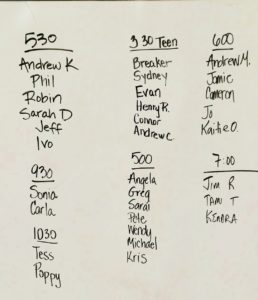 530
Andrew K
Phil
Robin
Sarah D
Jeff
Ivo
930
Sonia
Carla
1030
Tess
Poppy
330 Teen
Breaker
Sydney
Evan
Henry R.
Connor
Andrew C.
500
Angela
Greg
Sarai
Pete
Wendy
Michael
Kris
600
Andrew M.
Jamie
Cameron
Jo
Kaitie O.
7:00
Jim R
Tami T
Kendra